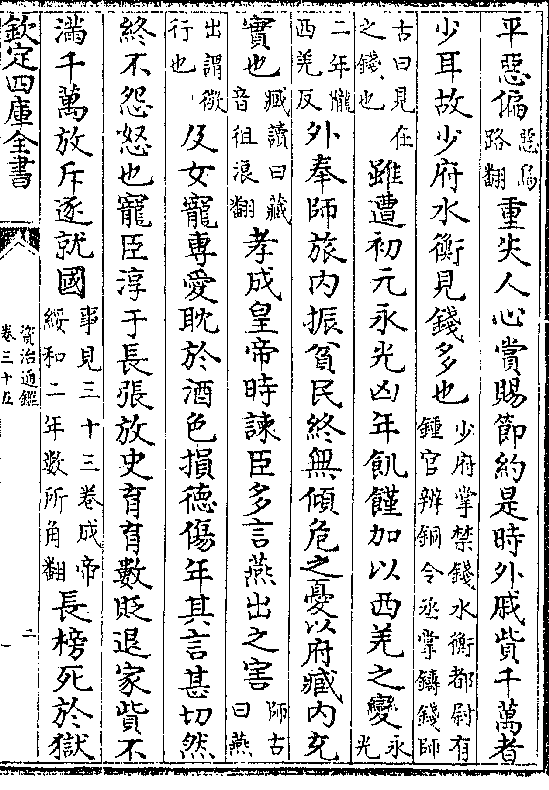 平惡偏惡烏路翻重失人心賞賜節約是時外戚貲千萬者
少耳故少府水衡見錢多也少府掌禁錢水衡都尉有鍾官辨銅令丞掌鑄錢師
古曰見在之錢也雖遭初元永光凶年飢饉加以西羌之變永光
二年隴西羌反外奉師旅内振貧民終無傾危之憂以府臧内充
實也臧讀曰藏音徂浪翻孝成皇帝時諫臣多言燕出之害師古曰燕
出謂微行也及女寵專愛耽於酒色損德傷年其言甚切然
終不怨怒也寵臣淳于長張放史育育數貶退家貲不
滿千萬放斥逐就國事見三十三卷成帝綏和二年數所角翻長榜死於獄
欽定四庫全書
資治通鑑
卷三十五
二